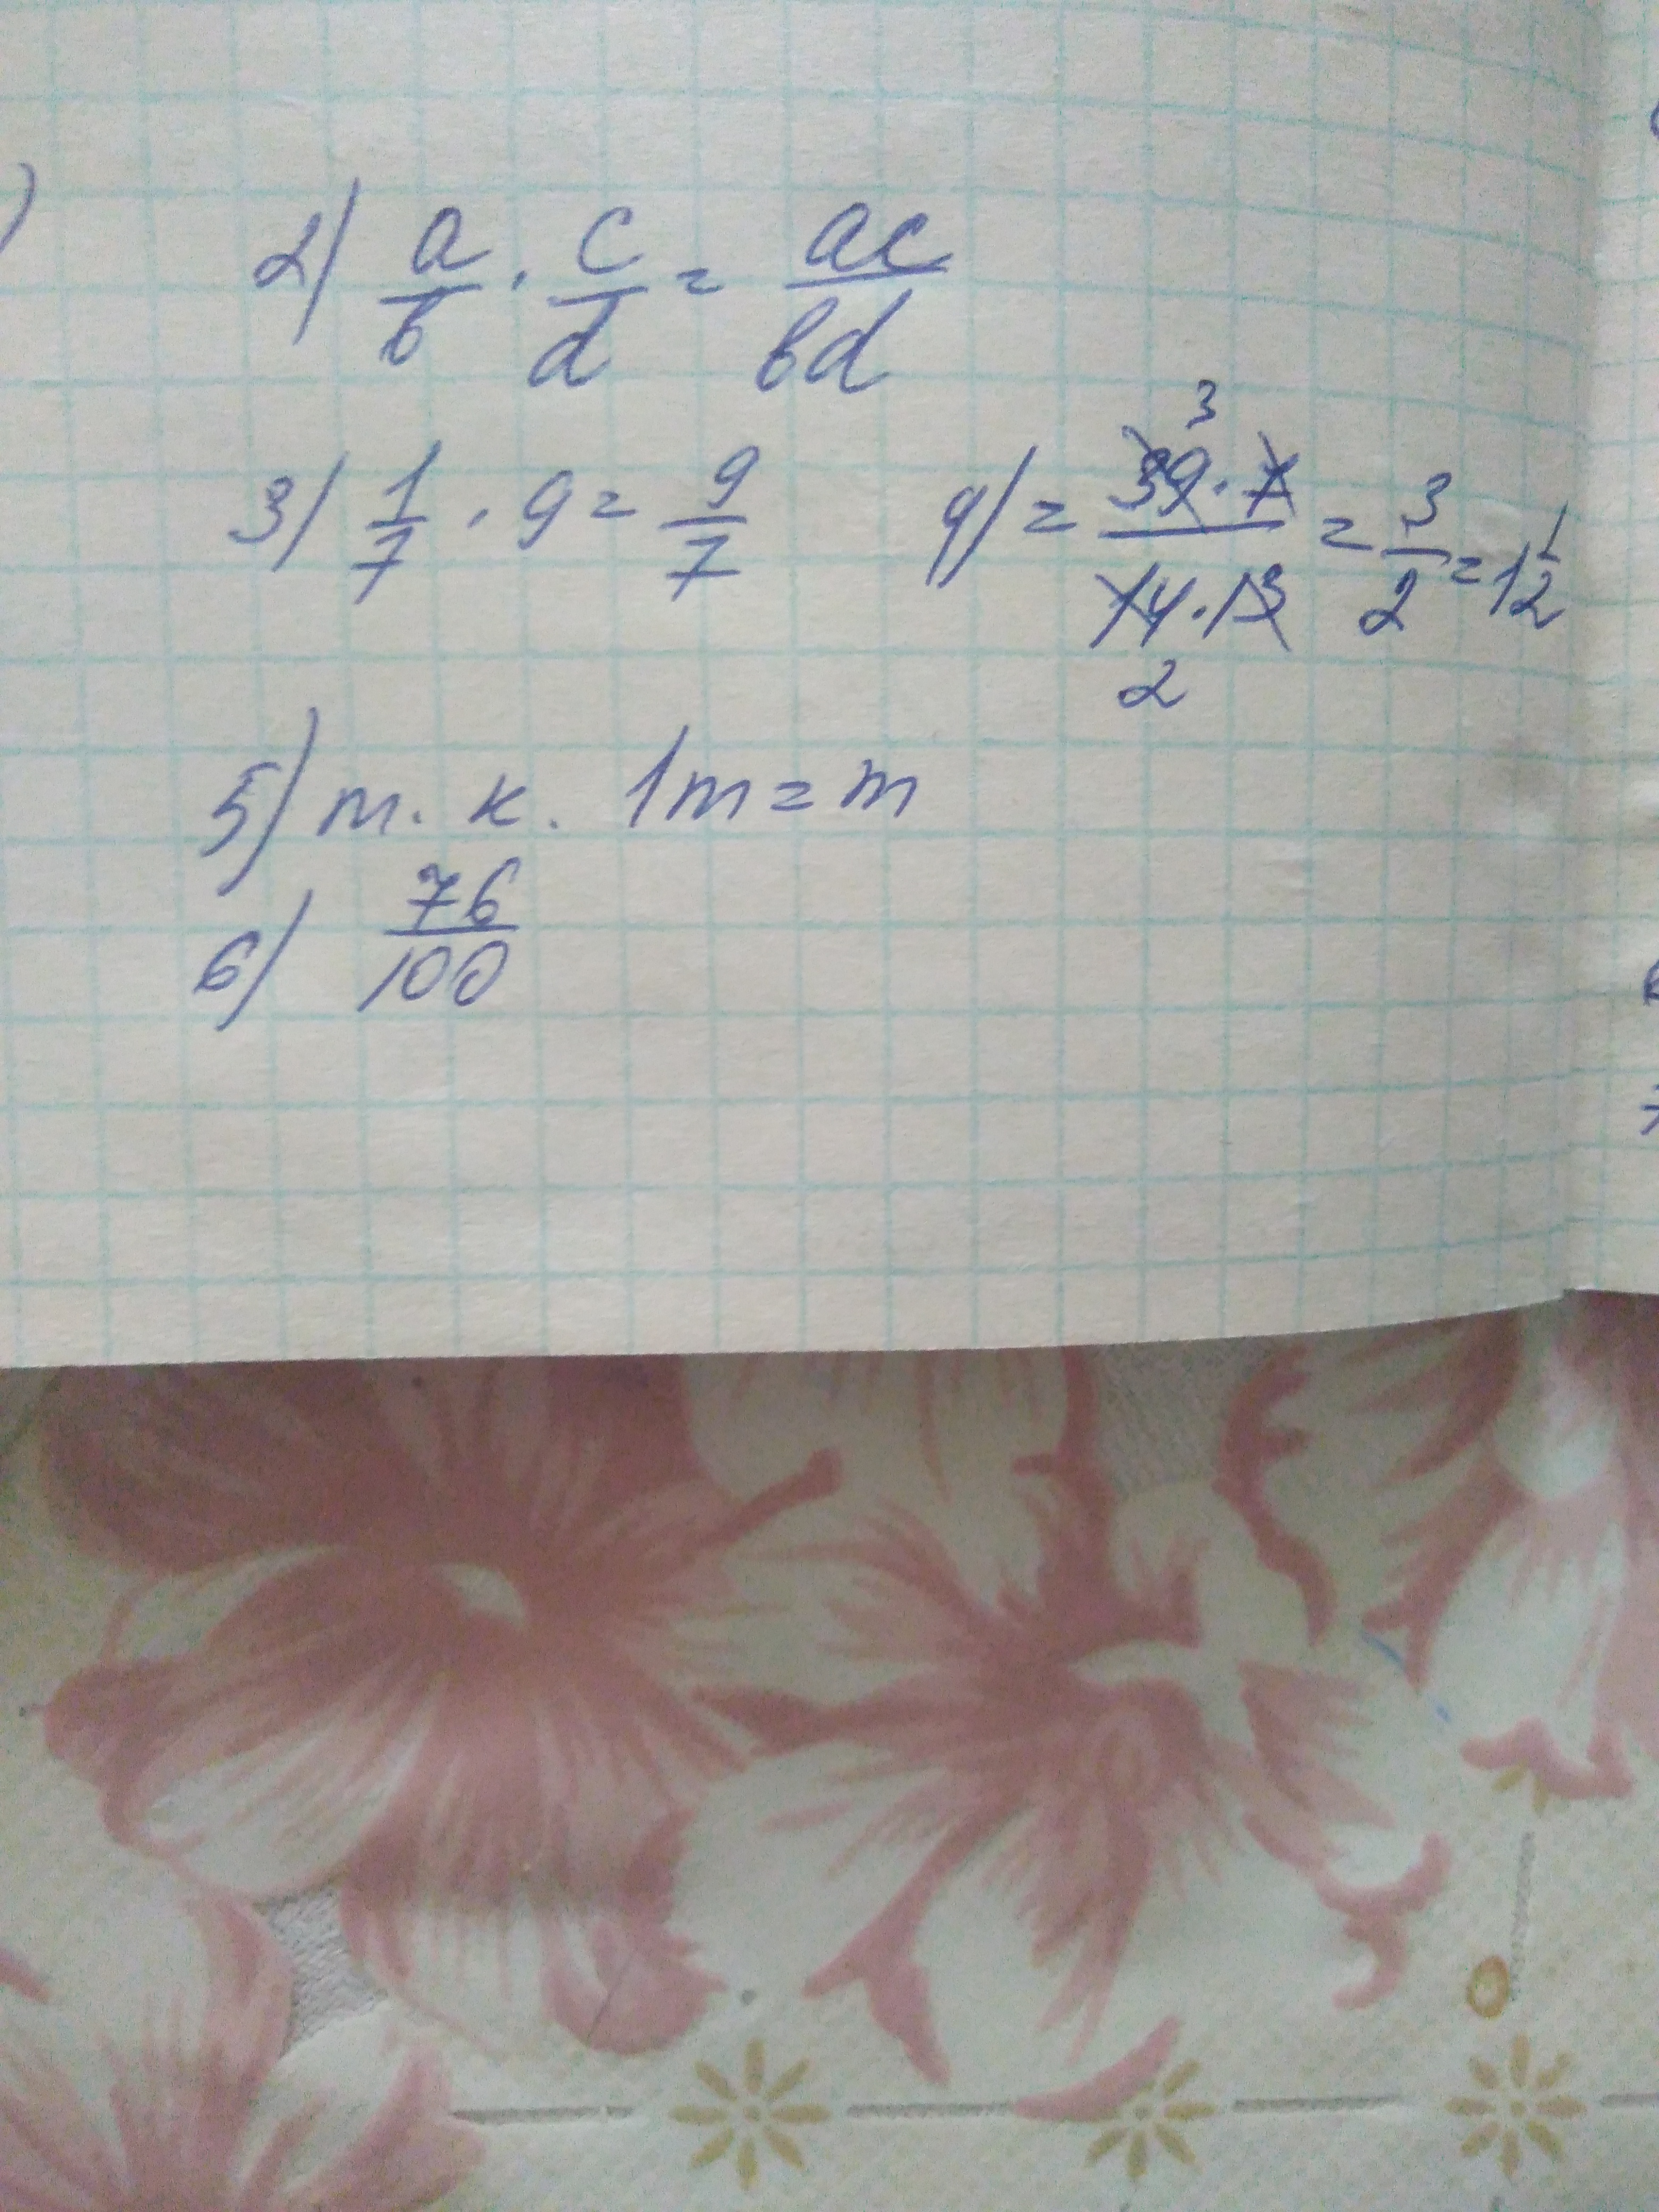 2) a/b · c/d = ac/bd
3) 1/7 · 9 = 9/7
4) = 39 · 7 / 14 · 13 = 3/2 = 1 1/2
3
2
5) т. к. 1m = m
6) 76/100